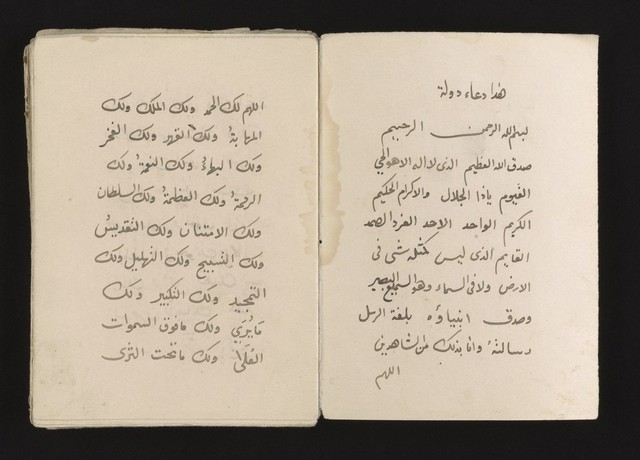 هذا دعاء دولة
بسم الله الرحمن الرحيم
صدق الله العظيم الذى لا اله الا هو الحي
القيوم ياذا الجلال والاكرام الحكيم
الكريم الواحد الاحد الفرد الصمد
القايم الذى ليس كمثله شى فى
الارض ولا فى السماء وهو السميع البصير
وصدق انبياؤه بلغة الرسل
رسالته وانا بذلك من الشاهدين
اللهم
اللهم لك الحمد ولك الملك ولك
المهابة ولك القهر ولك الفخر
ولك البهاء ولك النعمة ولك
الرحمة ولك العظمة ولك السلطان
ولك الامتنان ولك التقديس
ولك التسبيح ولك التهليل ولك
التمجيد ولك التكبير ولك
مايرى ولك مافوق السموات
العلى ولك ماتحت الثرى